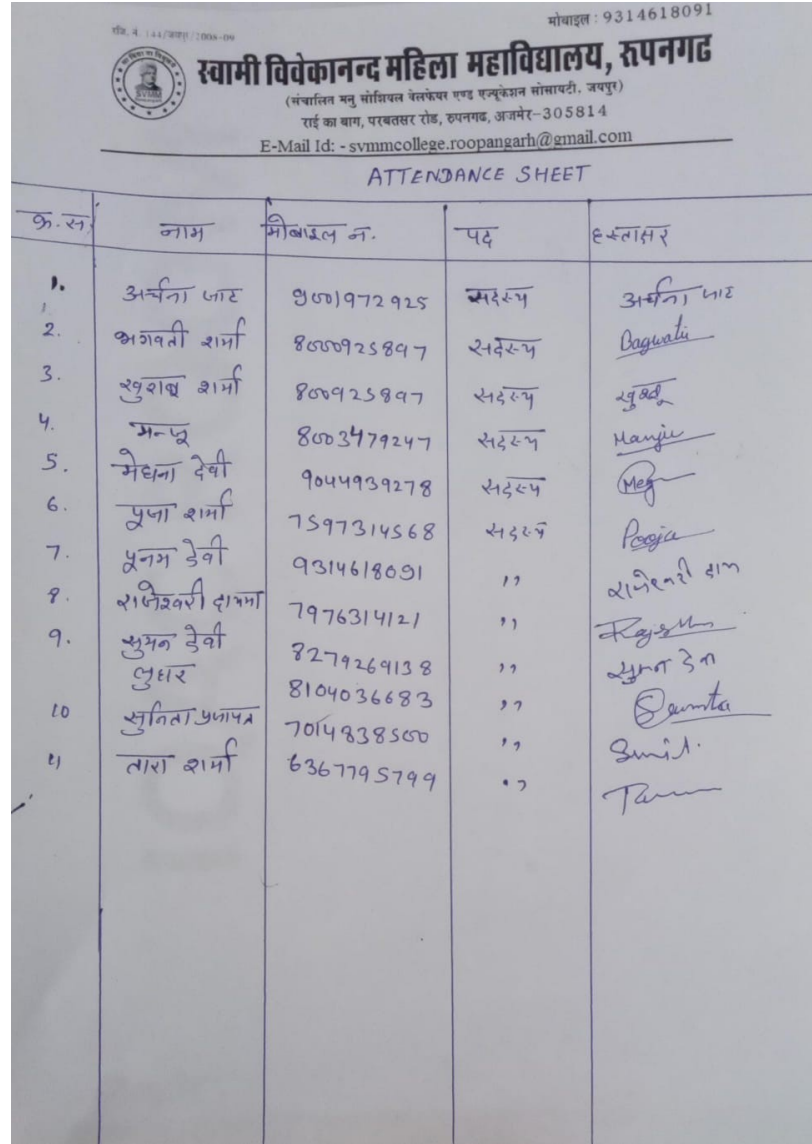 मोबाइल : 9314618091
रजि. नं. 144/जयपुर/2008-09
स्वामी विवेकानन्द महिला महाविद्यालय, रुपनगढ
(संचालित मनु सोशियल वेलफेयर एण्ड एज्यूकेशन सोसायटी, जयपुर)
राई का बाग, परबतसर रोड, रुपनगढ, अजमेर-305814
E-Mail Id: - svmmcollege.roopangarh@gmail.com
SVMM
ATTENDANCE SHEET
क्र. स. नाम मोबाइल न. पद हस्ताक्षर
1. अर्चना जाट 9001972925 सदस्य अर्चना जाट
2. भगवती शर्मा 8000925897 सदस्य Bagwati
3. खुशबू शर्मा 800925897 सदस्य खुशबू
4. मन्जू 8003479247 सदस्य Manju
5. मेघना देवी 9044939278 सदस्य Meg
6. पूजा शर्मा 7597314568 सदस्य Pooja
7. पूनम देवी 9314618091 ,, राजेश्वरी
8. राजेश्वरी दायमा 7976314121 ,,
9. सुमन देवी 8279269138 ,, सुमन
लुहार 8104036683 ,,
10 सुनिता प्रजापत 7014838500 ,,
11 तारा शर्मा 6367795799 ,,